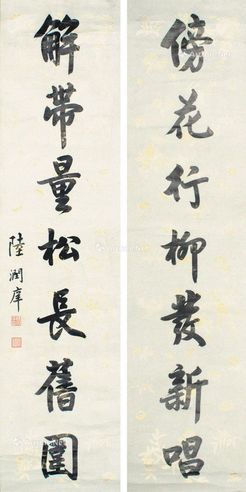 傍花行柳發新唱
解帶量松長舊圍
陸潤庠